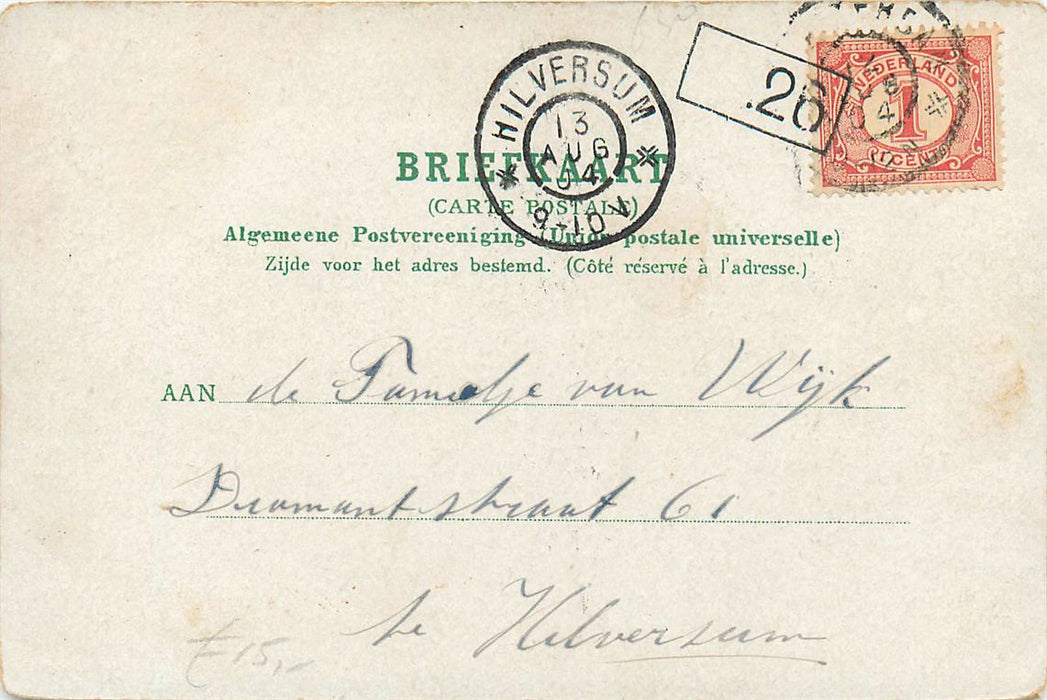 HILVERSUM
13
AUG
04
9-10V
.26
NEDERLAND
1
CENT
BRIEFKAART
(CARTE POSTALE)
Algemeene Postvereeniging (Union postale universelle)
Zijde voor het adres bestemd. (Côté réservé à l'adresse.)
AAN de Familje van Wijk
Diamantstraat 61
te Hilversum
£15,-